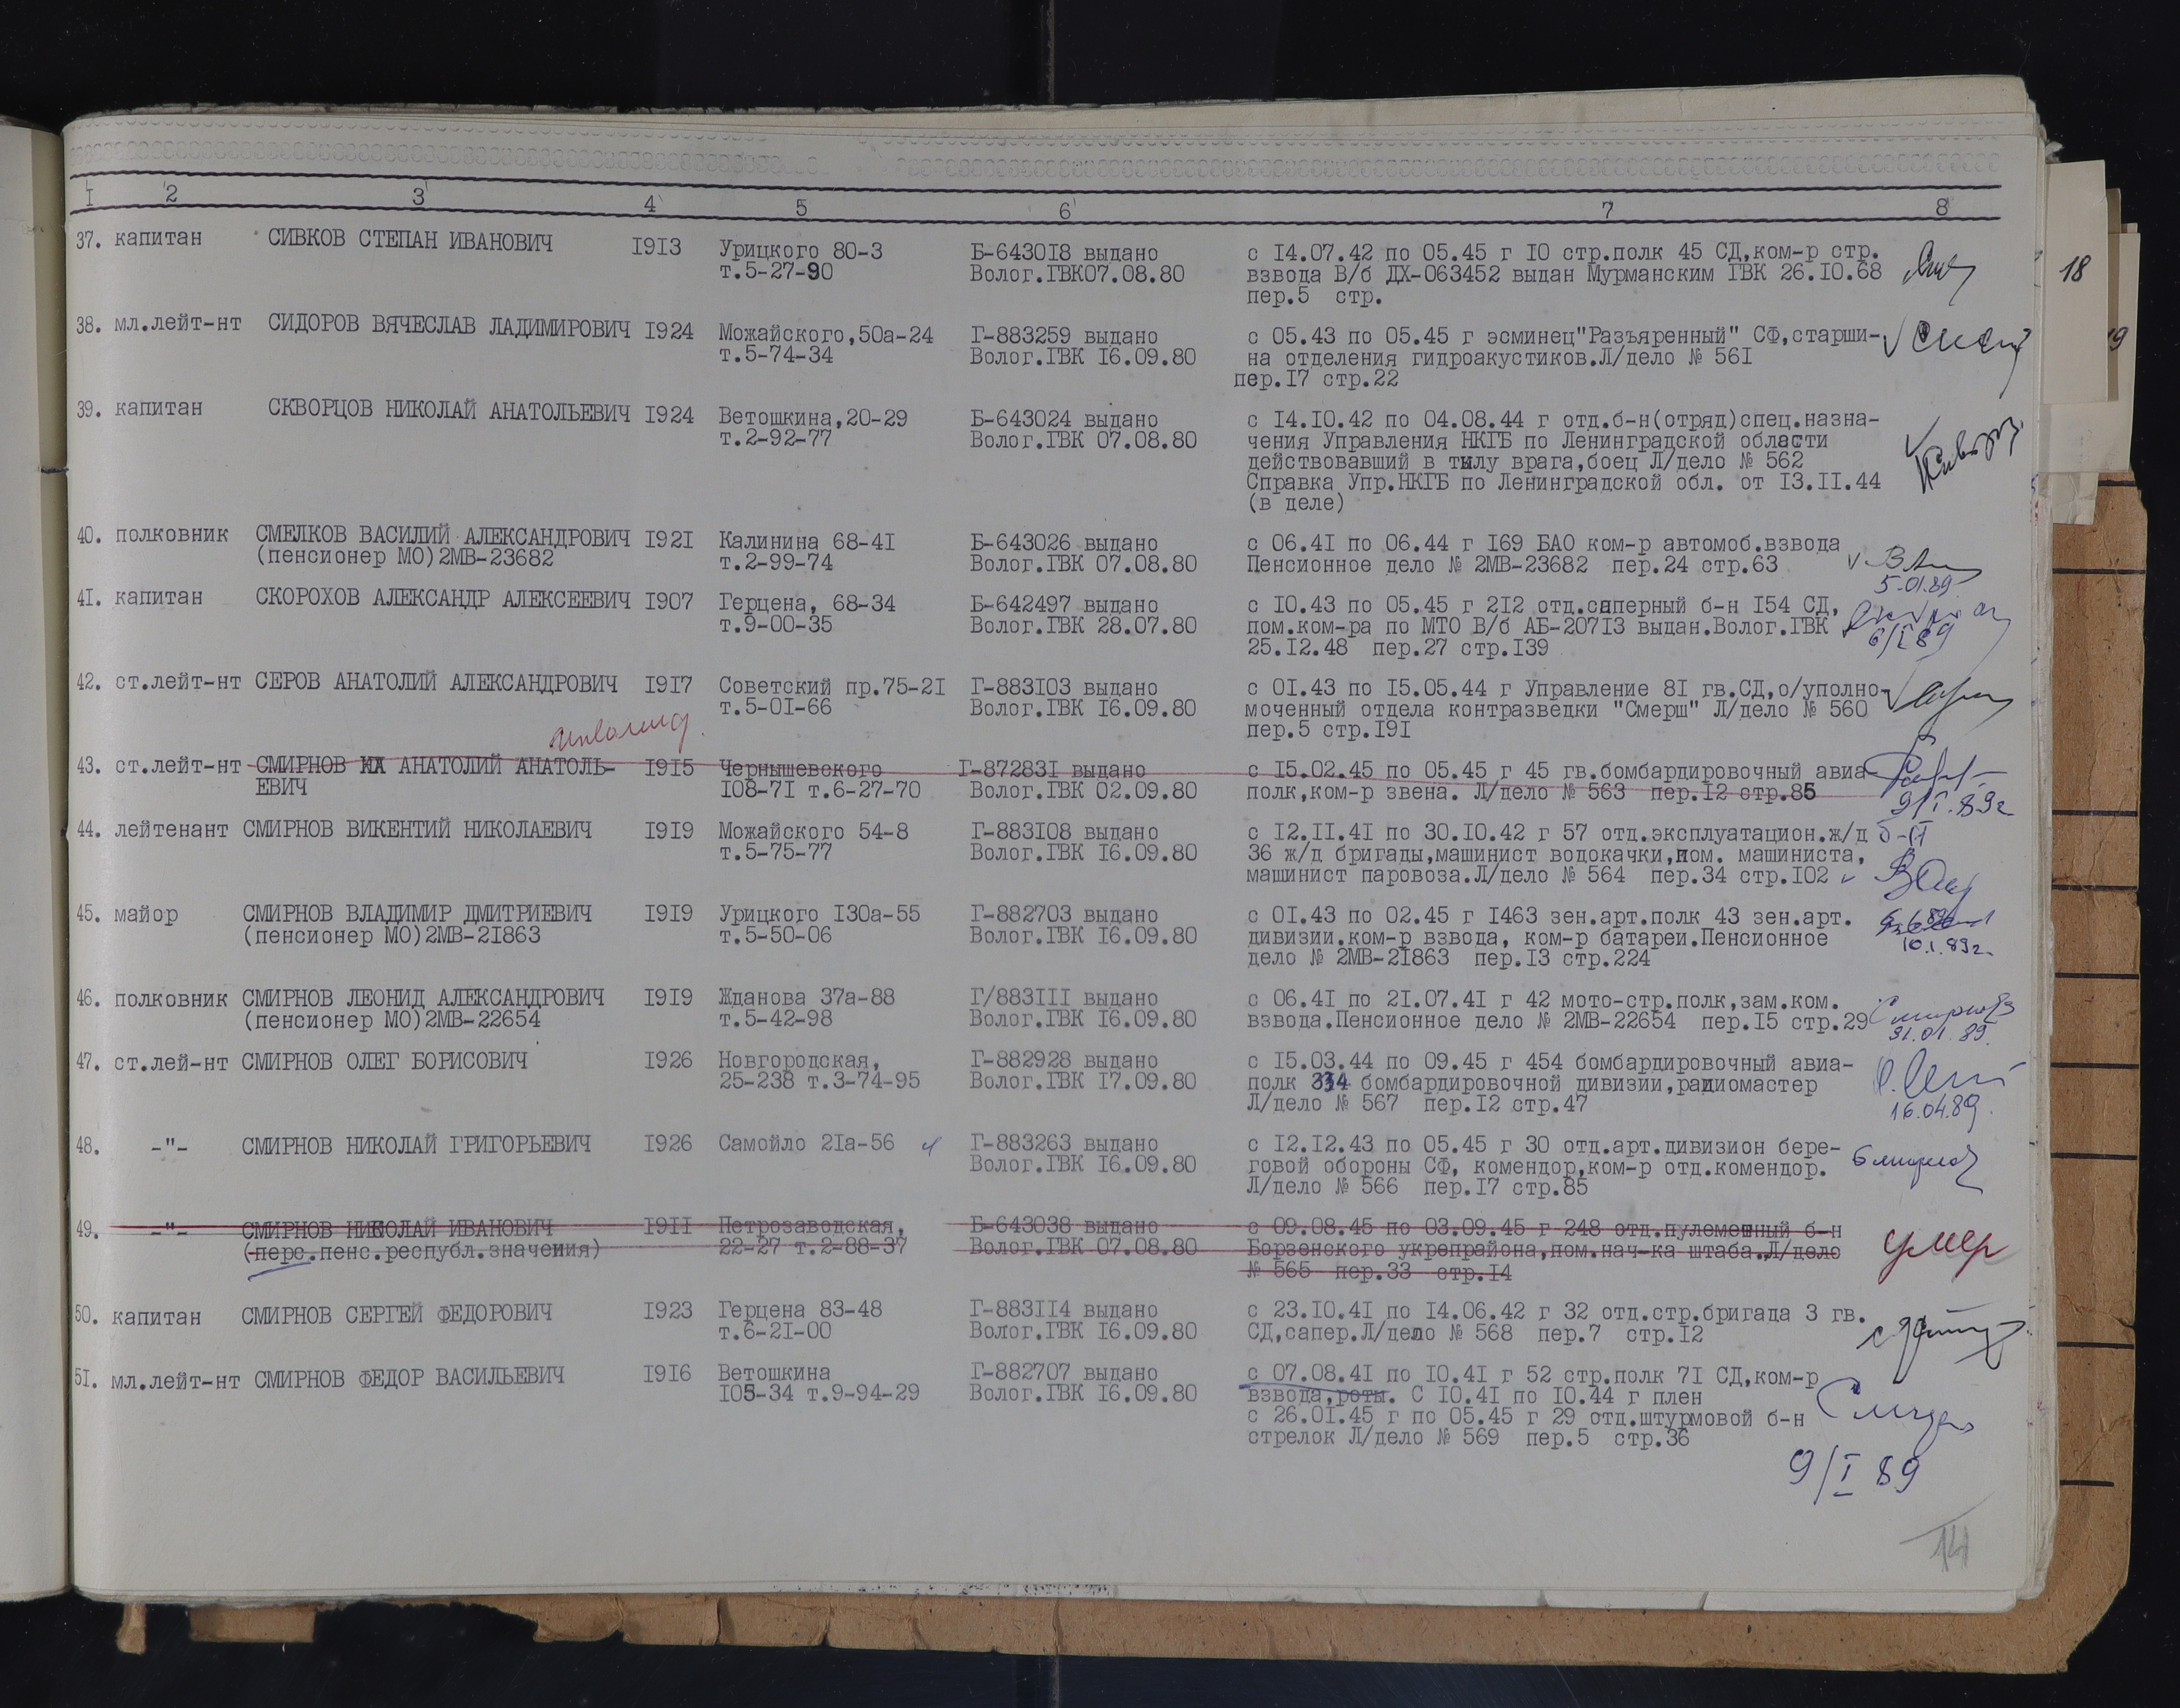 1 2 3 4 5 6 7 8
37. капитан СИВКОВ СТЕПАН ИВАНОВИЧ 1913 Урицкого 80-3 Б-643018 выдано с 14.07.42 по 05.45 г 10 стр.полк 45 СД,ком-р стр.
т.5-27-90 Волог.ГВК07.08.80 взвода В/б ДХ-063452 выдан Мурманским ГВК 26.10.68
пер.5 стр.
18
38. мл.лейт-нт СИДОРОВ ВЯЧЕСЛАВ ЛАДИМИРОВИЧ 1924 Можайского,50а-24 Г-883259 выдано с 05.43 по 05.45 г эсминец"Разъяренный" СФ,старши-
т.5-74-34 Волог.ГВК 16.09.80 на отделения гидроакустиков.Л/дело № 561
пер.17 стр.22
39. капитан СКВОРЦОВ НИКОЛАЙ АНАТОЛЬЕВИЧ 1924 Ветошкина,20-29 Б-643024 выдано с 14.10.42 по 04.08.44 г отд.б-н(отряд)спец.назна-
т.2-92-77 Волог.ГВК 07.08.80 чения Управления НКГБ по Ленинградской области
действовавший в тылу врага,боец Л/дело № 562
Справка Упр.НКГБ по Ленинградской обл. от 13.11.44
(в деле)
40. полковник СМЕЛКОВ ВАСИЛИЙ АЛЕКСАНДРОВИЧ 1921 Калинина 68-41 Б-643026 выдано с 06.41 по 06.44 г 169 БАО ком-р автомоб.взвода
(пенсионер МО)2МВ-23682 т.2-99-74 Волог.ГВК 07.08.80 Пенсионное дело № 2МВ-23682 пер.24 стр.63
5.01.89
41. капитан СКОРОХОВ АЛЕКСАНДР АЛЕКСЕЕВИЧ 1907 Герцена, 68-34 Б-642497 выдано с 10.43 по 05.45 г 212 отд.саперный б-н 154 СД,
т.9-00-35 Волог.ГВК 28.07.80 пом.ком-ра по МТО В/б АБ-20713 выдан.Волог.ГВК 6/I 89
25.12.48 пер.27 стр.139
42. ст.лейт-нт СЕРОВ АНАТОЛИЙ АЛЕКСАНДРОВИЧ 1917 Советский пр.75-21 Г-883103 выдано с 01.43 по 15.05.44 г Управление 81 гв.СД,о/уполно-
т.5-01-66 Волог.ГВК 16.09.80 моченный отдела контразведки "Смерш" Л/дело № 560
пер.5 стр.191
инвалид
43. ст.лейт-нт СМИРНОВ АНАТОЛИЙ АНАТОЛЬ- 1915 Чернышевского Г-872831 выдано с 15.02.45 по 05.45 г 45 гв.бомбардировочный авиа
ЕВИЧ 108-71 т.6-27-70 Волог.ГВК 02.09.80 полк,ком-р звена. Л/дело № 563 пер.12 стр.85
9/I.89г
44. лейтенант СМИРНОВ ВИКЕНТИЙ НИКОЛАЕВИЧ 1919 Можайского 54-8 Г-883108 выдано с 12.11.41 по 30.10.42 г 57 отд.эксплуатацион.ж/д
т.5-75-77 Волог.ГВК 16.09.80 36 ж/д бригады,машинист водокачки,пом. машиниста,
машинист паровоза.Л/дело № 564 пер.34 стр.102
45. майор СМИРНОВ ВЛАДИМИР ДМИТРИЕВИЧ 1919 Урицкого 130а-55 Г-882703 выдано с 01.43 по 02.45 г 1463 зен.арт.полк 43 зен.арт.
(пенсионер МО)2МВ-21863 т.5-50-06 Волог.ГВК 16.09.80 дивизии.ком-р взвода, ком-р батареи.Пенсионное 10.1.89г.
дело № 2МВ-21863 пер.13 стр.224
46. полковник СМИРНОВ ЛЕОНИД АЛЕКСАНДРОВИЧ 1919 Жданова 37а-88 Г/883111 выдано с 06.41 по 21.07.41 г 42 мото-стр.полк,зам.ком.
(пенсионер МО)2МВ-22654 т.5-42-98 Волог.ГВК 16.09.80 взвода.Пенсионное дело № 2МВ-22654 пер.15 стр.29
31.01.89.
47. ст.лей-нт СМИРНОВ ОЛЕГ БОРИСОВИЧ 1926 Новгородская, Г-882928 выдано с 15.03.44 по 09.45 г 454 бомбардировочный авиа-
25-238 т.3-74-95 Волог.ГВК 17.09.80 полк 334 бомбардировочной дивизии,радиомастер
Л/дело № 567 пер.12 стр.47 16.04.89.
48. -"- СМИРНОВ НИКОЛАЙ ГРИГОРЬЕВИЧ 1926 Самойло 21а-56 Г-883263 выдано с 12.12.43 по 05.45 г 30 отд.арт.дивизион бере-
Волог.ГВК 16.09.80 говой обороны СФ, комендор,ком-р отд.комендор.
Л/дело № 566 пер.17 стр.85
49. -"- СМИРНОВ НИКОЛАЙ ИВАНОВИЧ 1911 Петрозаводская, Б-643038 выдано с 09.08.45 по 03.09.45 г 248 отд.пулеметный б-н
(перс.пенс.республ.значения) 22-27 т.2-88-37 Волог.ГВК 07.08.80 Борзенского укрепрайона,пом.нач-ка штаба.Л/дело умер
№ 565 пер.33 стр.14
50. капитан СМИРНОВ СЕРГЕЙ ФЕДОРОВИЧ 1923 Герцена 83-48 Г-883114 выдано с 23.10.41 по 14.06.42 г 32 отд.стр.бригада 3 гв.
т.6-21-00 Волог.ГВК 16.09.80 СД,сапер.Л/дело № 568 пер.7 стр.12
51. мл.лейт-нт СМИРНОВ ФЕДОР ВАСИЛЬЕВИЧ 1916 Ветошкина Г-882707 выдано с 07.08.41 по 10.41 г 52 стр.полк 71 СД,ком-р
105-34 т.9-94-29 Волог.ГВК 16.09.80 взвода,роты. С 10.41 по 10.44 г плен
с 26.01.45 г по 05.45 г 29 отд.штурмовой б-н
стрелок Л/дело № 569 пер.5 стр.36
9/I 89
14